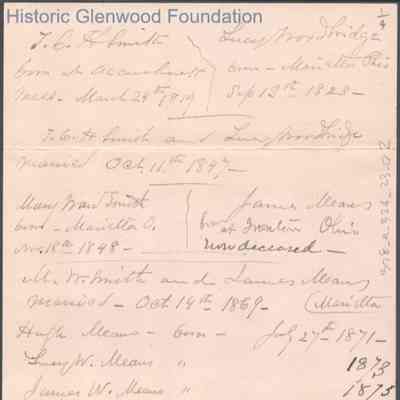 Historic Glenwood Foundation
T. C. H. Smith Lucy Woodbridge
born at Accushnet born - Marietta Ohio
Mass - March 24th 1819 Sep 13th 1828 -
T. C. H. Smith and Lucy Woodbridge
married Oct. 11th 1847 -
Mary Smith James Means
born - Marietta O. born at Ironton Ohio
Nov. 18th 1848 - now deceased -
M. W. Smith and James Means
married - Oct 14th 1869 - Marietta
Hugh Means - born - July 27th 1871 -
Lucy W. Means " 1873
James W. Means " 1875